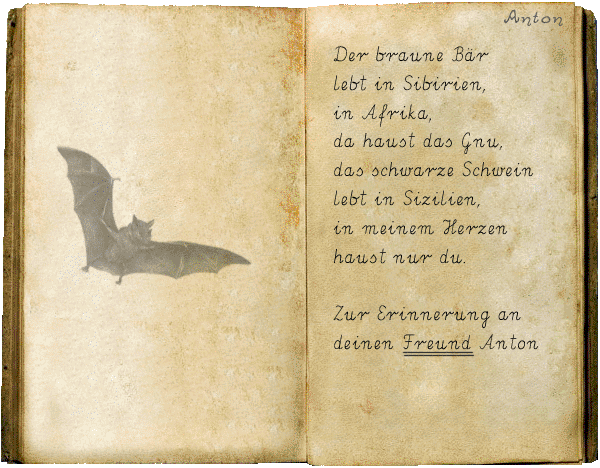 Anton
Der braune Bär
lebt in Sibirien,
in Afrika,
da haust das Gnu,
das schwarze Schwein
lebt in Sizilien,
in meinem Herzen
haust nur du.
Zur Erinnerung an
deinen Freund Anton